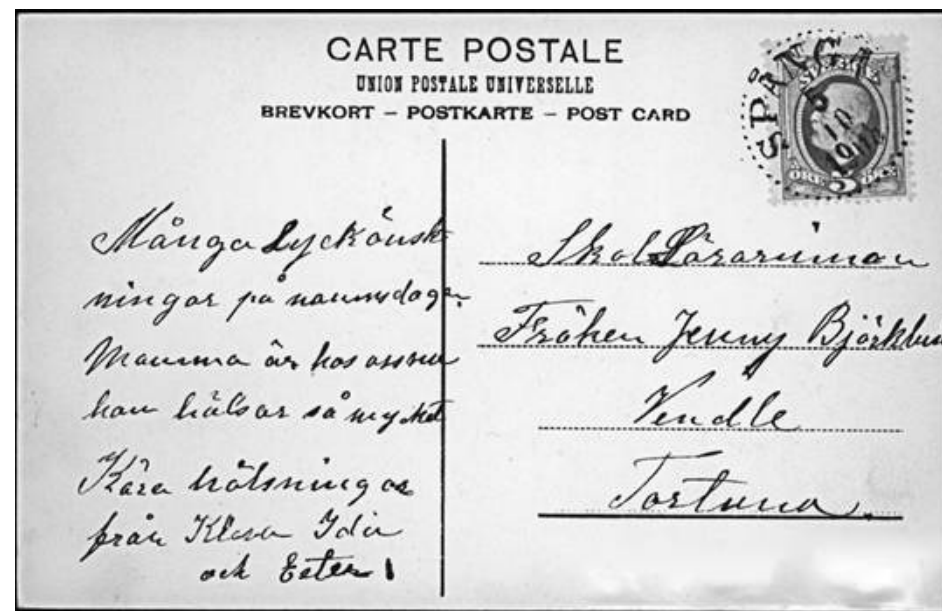 CARTE POSTALE
UNION POSTALE UNIVERSELLE
BREVKORT – POSTKARTE – POST CARD
SPÅNGA
5
10
SVERIGE
ÖRE 5 ÖRE
Många Lyckönsk
ningar på namnsdagen
Mamma är hos oss nu
hon hälsar så mycket
Kära hälsningar
från Klara Ida
och Ester
Skol Lärarinnan
Fröken Jenny Björkbu
Vendle
Tortuna.